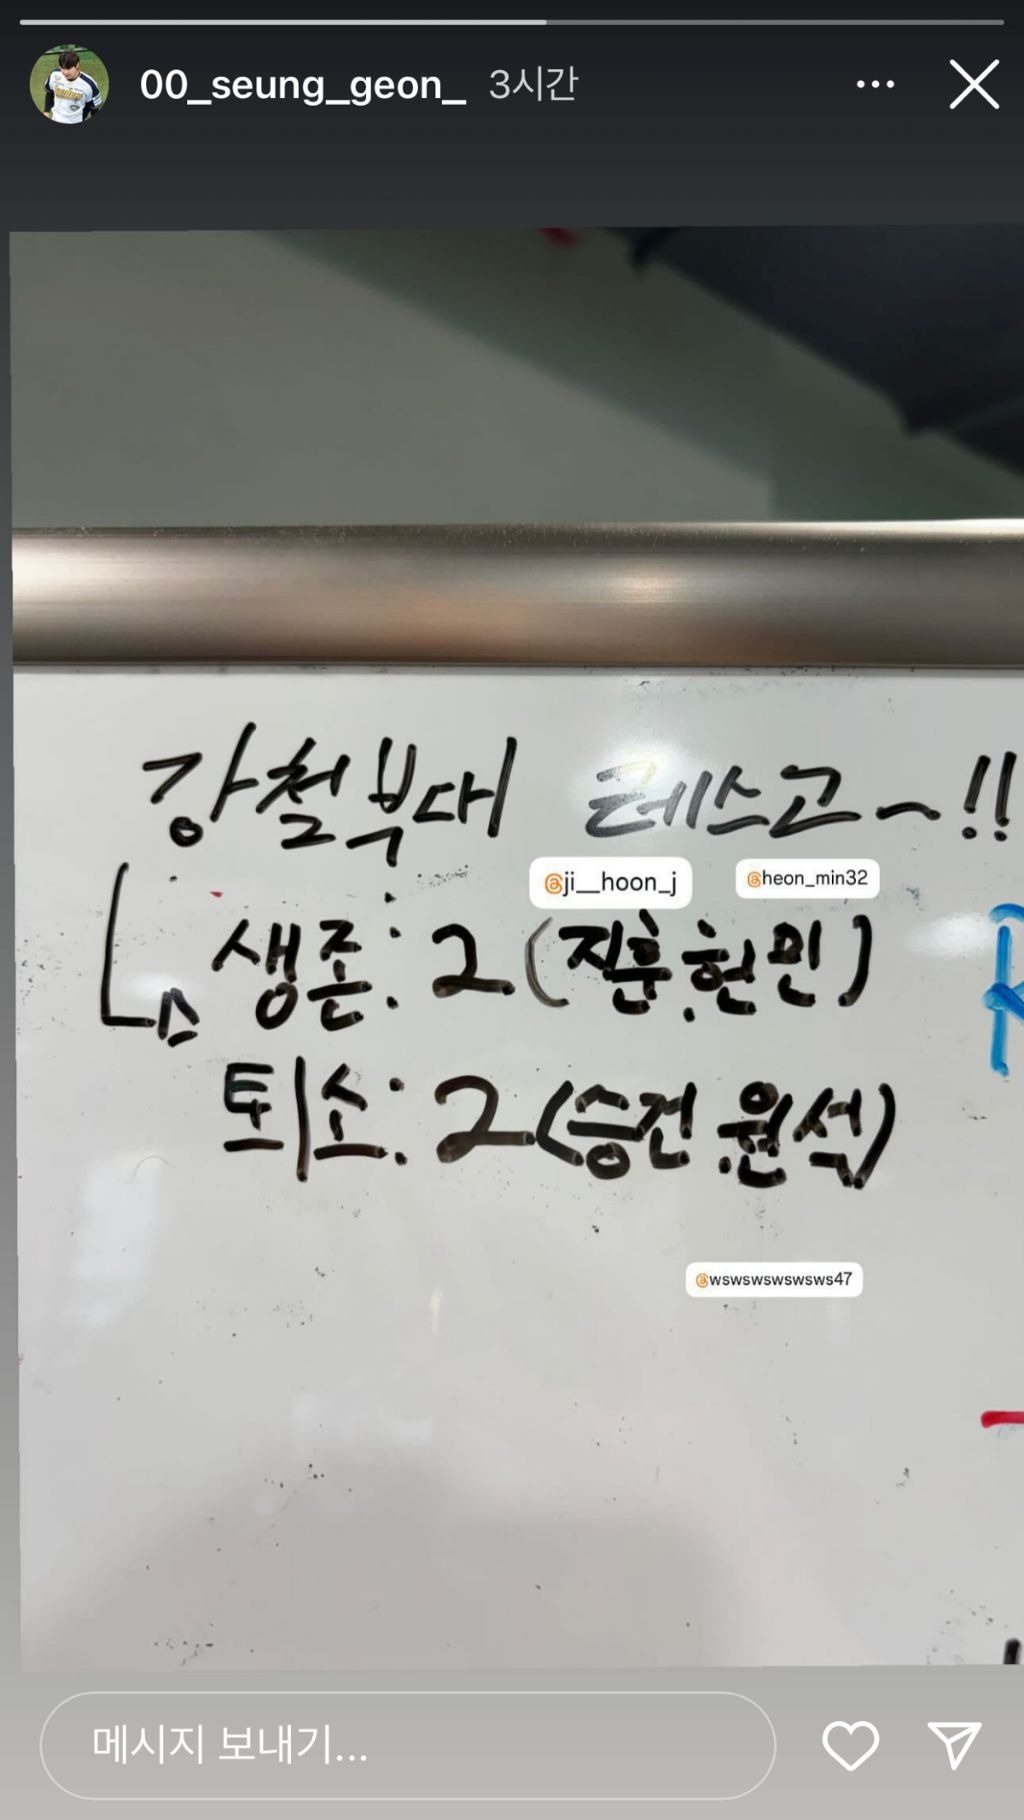 00_seung_geon_ 3시간
강철부대 레스고~!!
@ji__hoon_j @heon_min32
생존: 2 (지훈.헌민)
퇴소: 2 (승건.원석)
@wswswswswsws47
메시지 보내기...